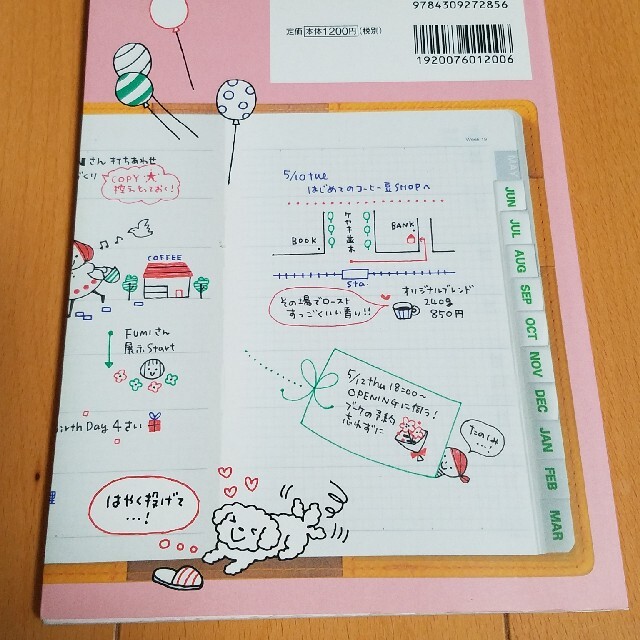 9784309272856
定価 本体1200円(税別)
1920076012006
さん 打ちあわせ
くり
COPY★
控えとっておく!
COFFEE
FUMIさん
展示Start
irth Day 4さい
はやく投げて
…!
5/10 tue
はじめてのコーヒー豆SHOPへ
BOOK
ケヤキ並木
BANK
sta.
その場でロースト
すっごくいい香り!!
オリジナルブレンド
240g
850円
5/12 thu 18:00〜
OPENINGに伺う!
ブーケの予約
忘れずに
たのしみ
…!
JUN
JUL
AUG
SEP
OCT
NOV
DEC
JAN
FEB
MAR